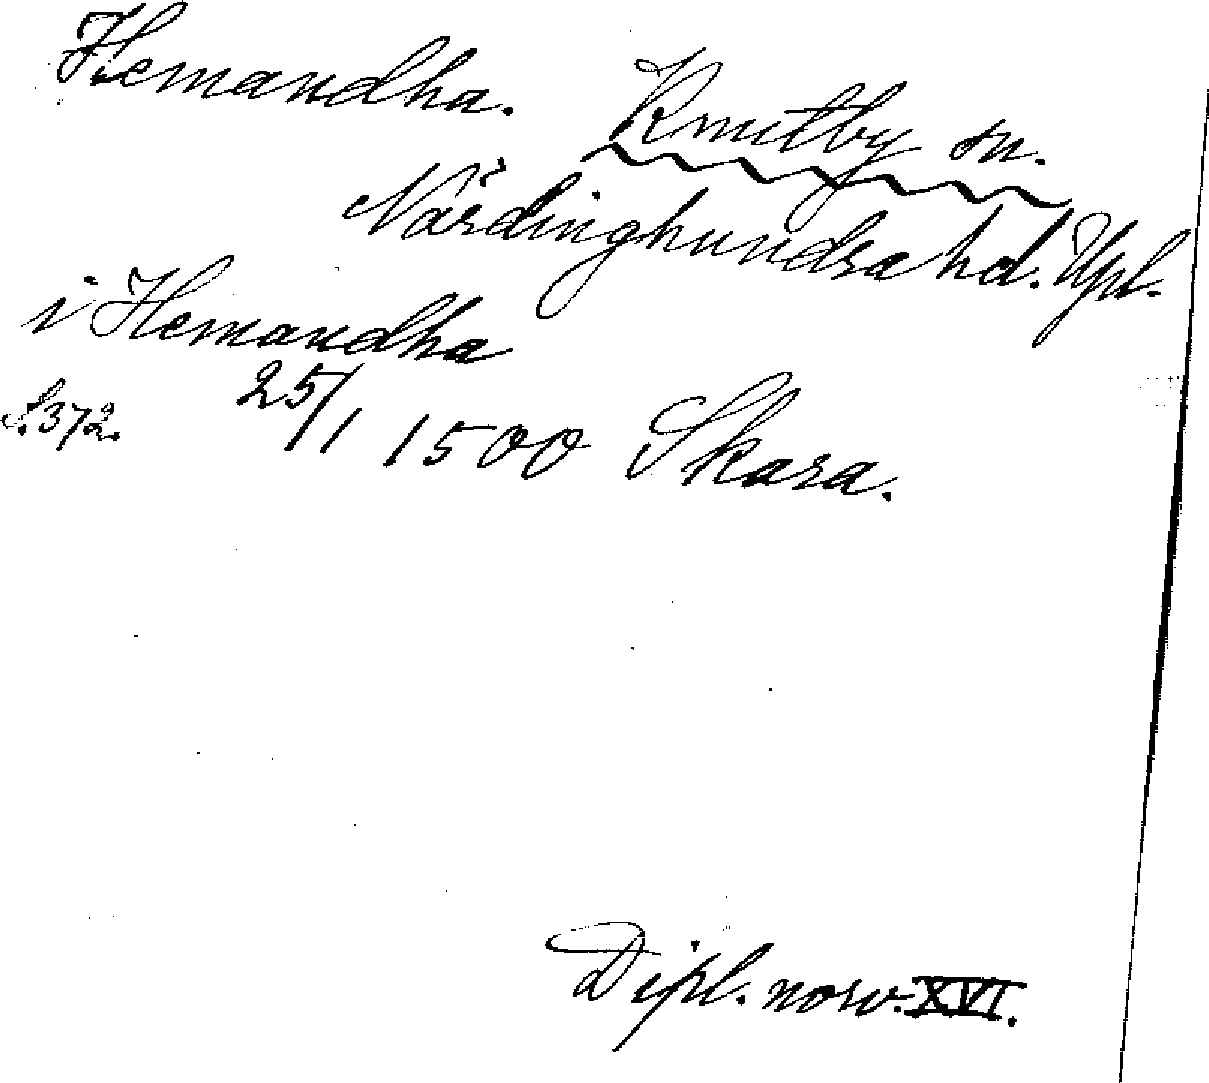 Hemavdha. Knutby sn.
Närdinghundra hd. Upl.
i Hemavdha
S. 372. 25/1 1500 Skara.
Dipl. norv. XVI.